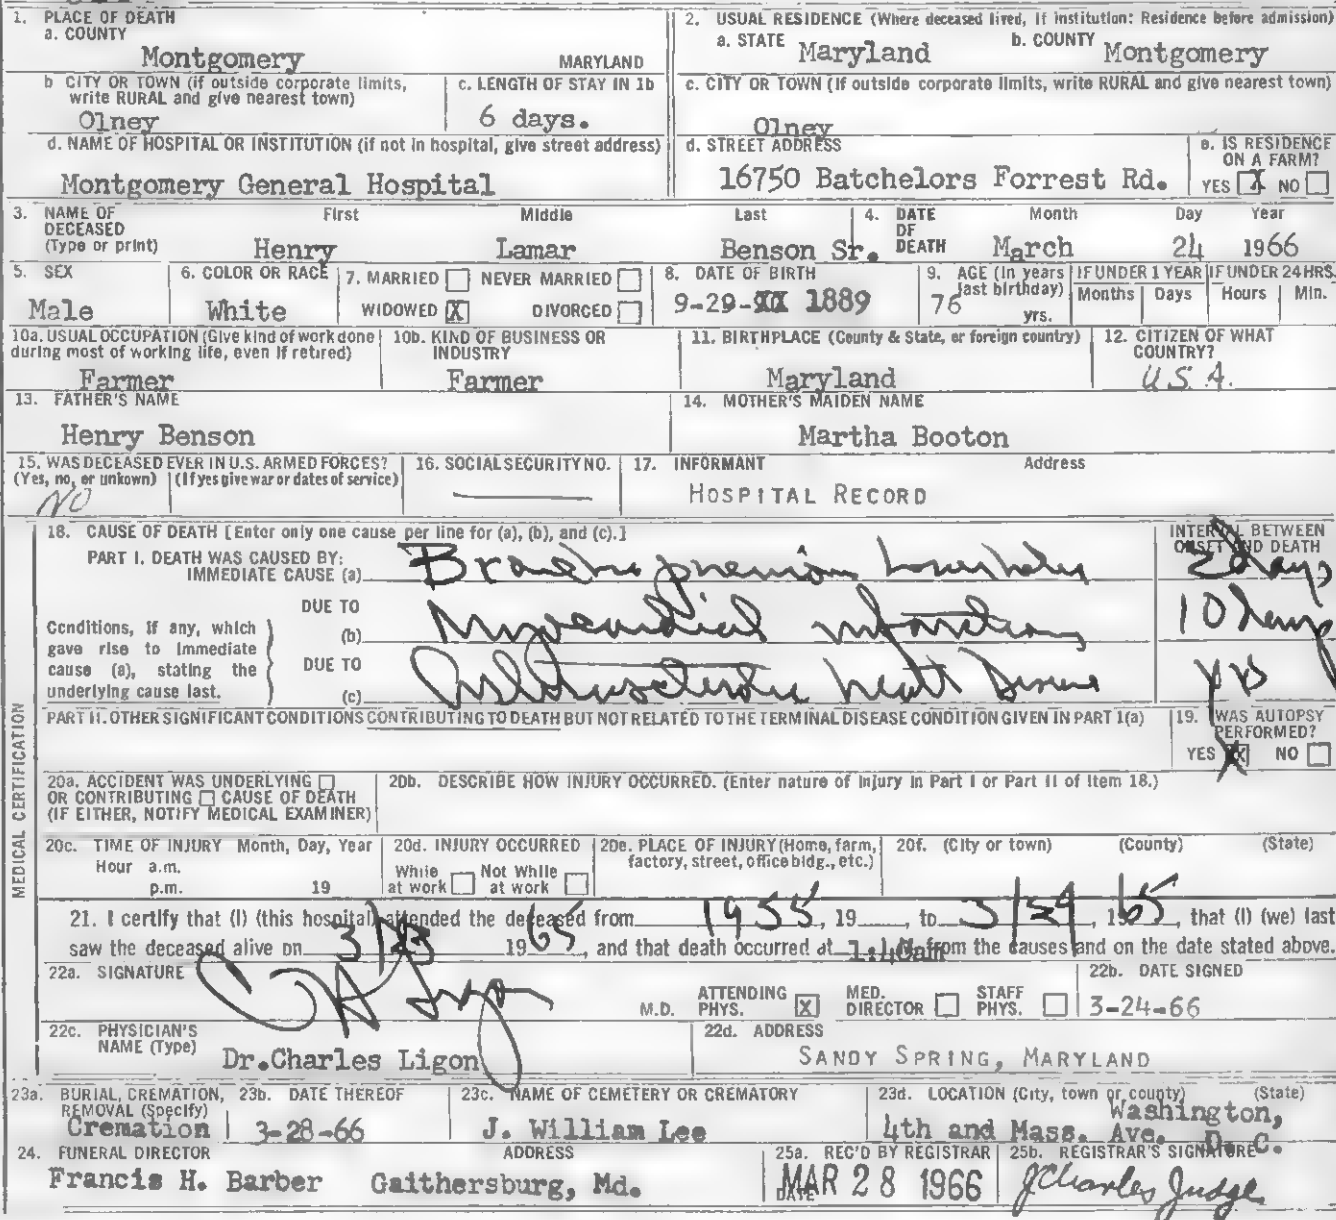 1. PLACE OF DEATH
a. COUNTY
Montgomery MARYLAND
2. USUAL RESIDENCE (Where deceased lived, If institution: Residence before admission)
a. STATE Maryland b. COUNTY Montgomery
b CITY OR TOWN (if outside corporate limits, write RURAL and give nearest town)
Olney
c. LENGTH OF STAY IN 1b
6 days.
c. CITY OR TOWN (If outside corporate limits, write RURAL and give nearest town)
Olney
d. NAME OF HOSPITAL OR INSTITUTION (if not in hospital, give street address)
Montgomery General Hospital
d. STREET ADDRESS
16750 Batchelors Forrest Rd.
e. IS RESIDENCE ON A FARM?
YES X NO
3. NAME OF DECEASED (Type or print)
First Middle Last
Henry Lamar Benson Sr.
4. DATE OF DEATH
Month Day Year
March 24 1966
5. SEX
Male
6. COLOR OR RACE
White
7. MARRIED NEVER MARRIED
WIDOWED X DIVORCED
8. DATE OF BIRTH
9-29-XX 1889
9. AGE (In years last birthday)
76 yrs.
IF UNDER 1 YEAR
Months Days
IF UNDER 24 HRS.
Hours Min.
10a. USUAL OCCUPATION (Give kind of work done during most of working life, even if retired)
Farmer
10b. KIND OF BUSINESS OR INDUSTRY
Farmer
11. BIRTHPLACE (County & State, or foreign country)
Maryland
12. CITIZEN OF WHAT COUNTRY?
U.S.A.
13. FATHER'S NAME
Henry Benson
14. MOTHER'S MAIDEN NAME
Martha Booton
15. WAS DECEASED EVER IN U.S. ARMED FORCES?
(Yes, no, or unkown) (If yes give war or dates of service)
NO
16. SOCIAL SECURITY NO.
17. INFORMANT Address
HOSPITAL RECORD
MEDICAL CERTIFICATION
18. CAUSE OF DEATH [Enter only one cause per line for (a), (b), and (c).]
INTERVAL BETWEEN ONSET AND DEATH
PART I. DEATH WAS CAUSED BY:
IMMEDIATE CAUSE (a) 2 days
Conditions, if any, which gave rise to immediate cause (a), stating the underlying cause last.
DUE TO
(b) Myocardial infarction 10
DUE TO
(c) heart disease yrs
PART II. OTHER SIGNIFICANT CONDITIONS CONTRIBUTING TO DEATH BUT NOT RELATED TO THE TERMINAL DISEASE CONDITION GIVEN IN PART I(a)
19. WAS AUTOPSY PERFORMED?
YES X NO
20a. ACCIDENT WAS UNDERLYING
OR CONTRIBUTING CAUSE OF DEATH
(IF EITHER, NOTIFY MEDICAL EXAMINER)
20b. DESCRIBE HOW INJURY OCCURRED. (Enter nature of injury in Part I or Part II of item 18.)
20c. TIME OF INJURY Month, Day, Year
Hour a.m.
p.m. 19
20d. INJURY OCCURRED
While at work Not While at work
20e. PLACE OF INJURY (Home, farm, factory, street, office bldg., etc.)
20f. (City or town) (County) (State)
21. I certify that (I) (this hospital) attended the deceased from 1955, 19 to 3/24, 1965, that (I) (we) last
saw the deceased alive on 3/23 1965, and that death occurred at 1:40am from the causes and on the date stated above.
22a. SIGNATURE
M.D. ATTENDING PHYS. X MED. DIRECTOR STAFF PHYS.
22b. DATE SIGNED
3-24-66
22c. PHYSICIAN'S NAME (Type)
Dr. Charles Ligon
22d. ADDRESS
SANDY SPRING, MARYLAND
23a. BURIAL, CREMATION, REMOVAL (Specify)
Cremation
23b. DATE THEREOF
3-28-66
23c. NAME OF CEMETERY OR CREMATORY
J. William Lee
23d. LOCATION (City, town or county) (State)
4th and Mass. Ave. Washington, D. C.
24. FUNERAL DIRECTOR ADDRESS
Francis H. Barber Gaithersburg, Md.
25a. REC'D BY REGISTRAR
DATE MAR 28 1966
25b. REGISTRAR'S SIGNATURE
J Charles Judge